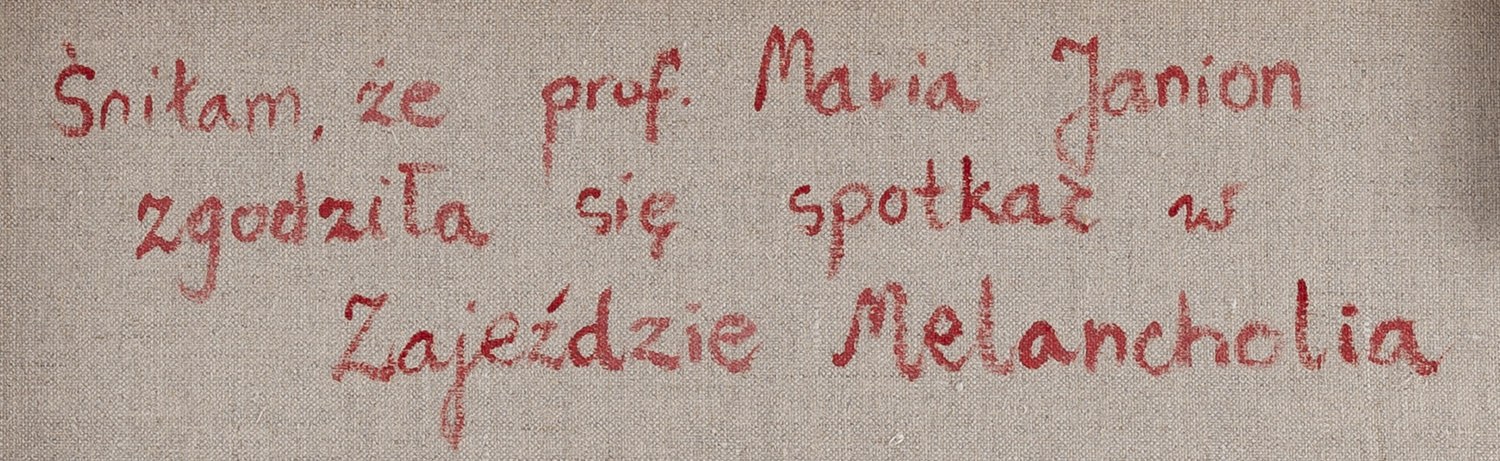 Śniłam, że prof. Maria Janion
zgodziła się spotkać w
Zajeździe Melancholia